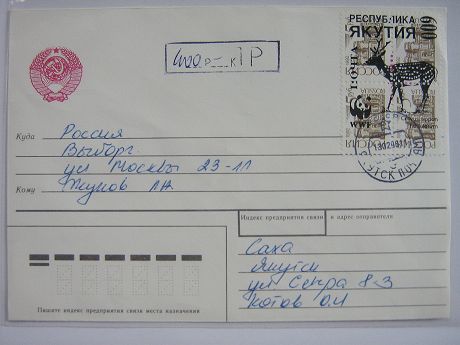 РЕСПУБЛИКА
ЯКУТИЯ
600
ПОЧТА
WWF
Р
Куда Россия
Выборг
ул Москвы 23-11
Кому Жуков ЛН
Индекс предприятия связи и адрес отправителя
Саха
Якутск
ул 8-3
Котов О.И
Пишите индекс предприятия связи места назначения